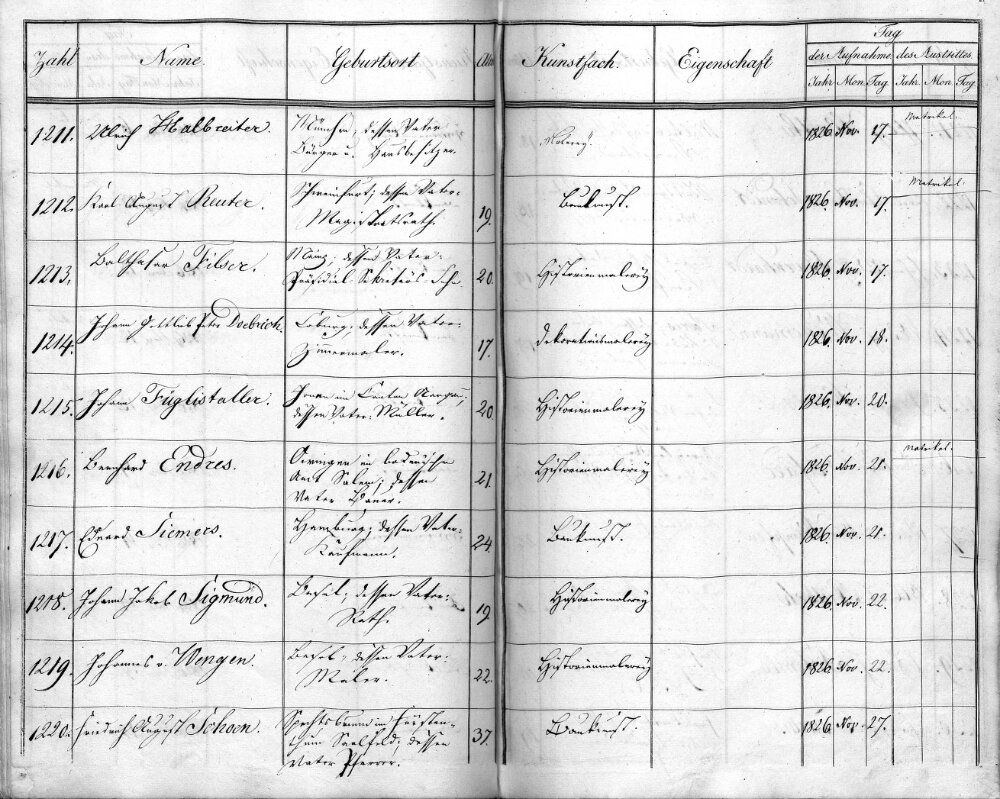 Tag
Zahl Name Geburtsort Alter Kunstfach. Eigenschaft der Aufnahme des Austrittes
Jahr Mon. Tag Jahr. Mon. Tag
1211. Ulrich Halbreiter. München, dessen Vater Bürger u. Hausbesitzer. Malerey. 1826 Nov. 17. Matrikel.
1212. Karl August Reuter. Schweinfurt; dessen Vater Magistratsrath. 19. Baukunst. 1826. Nov. 17. Matrikel.
1213. Balthasar Filser. dessen Vater Präsidial-Sekretärs 20. Historienmalerey 1826. Nov. 17.
1214. Johann Gottlieb Peter Doebrich. Coburg, dessen Vater Zimmermaler. 17. Dekorationsmalerey 1826. Nov. 18.
1215. Johann Füglistaller. Jonen im Canton Aargau, dessen Vater Müller. 20 Historienmalerey 1826. Nov. 20.
1216. Bernhard Endres. Owingen im badenschen Amt Salem; dessen Vater Bauer. 21. Historienmalerey 1826. Nov. 21. Matrikel.
1217. Eduard Siemers. Hamburg; dessen Vater Kaufmann. 24. Baukunst. 1826. Nov. 21.
1218. Johann Jakob Sigmund. Basel; dessen Vater Rath. 19 Historienmalerey 1826. Nov. 22.
1219. Johannes v. Wengen. Basel; dessen Vater Maler. 22. Historienmalerey 1826. Nov. 22.
1220. Friedrich August Schoen. Spechtsbrunn im Fürstenthum Saalfeld; dessen Vater Pfarrer. 37. Baukunst. 1826. Nov. 27.